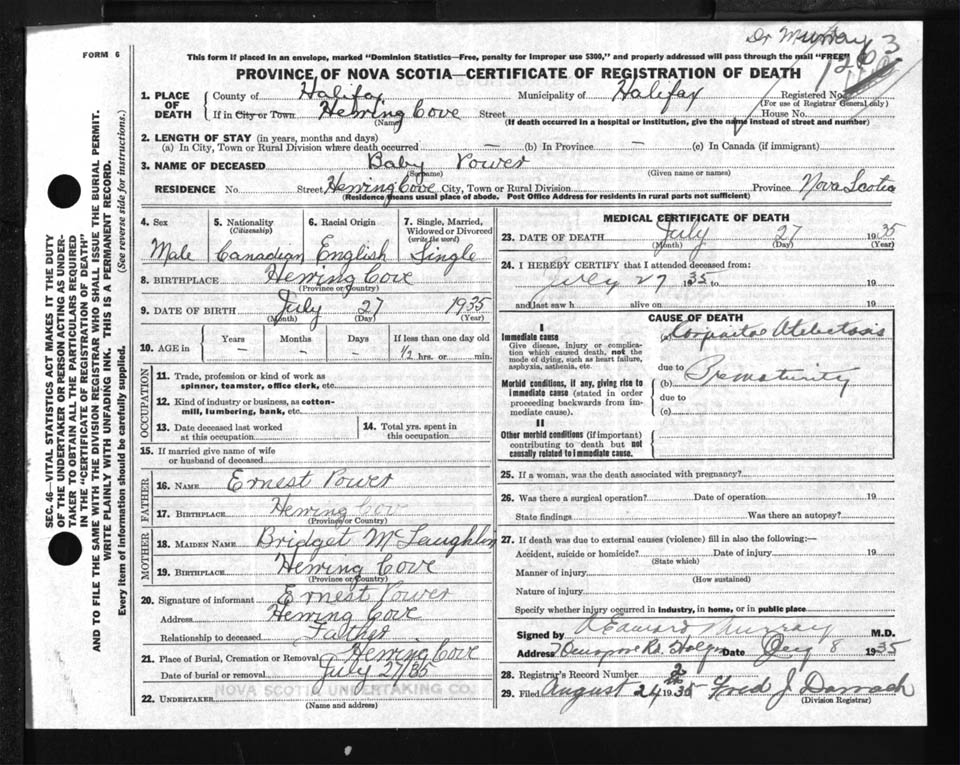 Dr Murray
1263
FORM 6
This form if placed in an envelope, marked "Dominion Statistics—Free, penalty for improper use $300," and properly addressed will pass through the mail "FREE"
PROVINCE OF NOVA SCOTIA—CERTIFICATE OF REGISTRATION OF DEATH
1. PLACE OF DEATH County of Halifax Municipality of Halifax Registered No.
(For use of Registrar General only)
If in City or Town Herring Cove Street House No.
(Name) (If death occurred in a hospital or institution, give the name instead of street and number)
2. LENGTH OF STAY (in years, months and days)
(a) In City, Town or Rural Division where death occurred — (b) In Province — (c) In Canada (if immigrant)
3. NAME OF DECEASED Baby Power
(Surname) (Given name or names)
RESIDENCE No. Street Herring Cove City, Town or Rural Division Province Nova Scotia
(Residence means usual place of abode. Post Office Address for residents in rural parts not sufficient)
4. Sex 5. Nationality 6. Racial Origin 7. Single, Married, Widowed or Divorced
(Citizenship) (write the word)
Male Canadian English Single
8. BIRTHPLACE Herring Cove
(Province or Country)
9. DATE OF BIRTH July 27 1935
(Month) (Day) (Year)
10. AGE in Years Months Days If less than one day old
— — — 1/2 hrs. or min.
OCCUPATION
11. Trade, profession or kind of work as spinner, teamster, office clerk, etc.
12. Kind of industry or business, as cotton-mill, lumbering, bank, etc.
13. Date deceased last worked at this occupation
14. Total yrs. spent in this occupation
15. If married give name of wife or husband of deceased
FATHER
16. NAME Ernest Power
17. BIRTHPLACE Herring Cove
(Province or Country)
MOTHER
18. MAIDEN NAME Bridget McLaughlin
19. BIRTHPLACE Herring Cove
(Province or Country)
20. Signature of informant Ernest Power
Address Herring Cove
Relationship to deceased Father
21. Place of Burial, Cremation or Removal Herring Cove
Date of burial or removal July 27/35
22. UNDERTAKER NOVA SCOTIA UNDERTAKING CO.
(Name and address)
MEDICAL CERTIFICATE OF DEATH
23. DATE OF DEATH July 27 1935
(Month) (Day) (Year)
24. I HEREBY CERTIFY that I attended deceased from:
July 27 1935 to 19
and last saw h alive on 19
CAUSE OF DEATH
I
Immediate cause
Give disease, injury or complication which caused death, not the mode of dying, such as heart failure, asphyxia, asthenia, etc.
(a)
due to
Morbid conditions, if any, giving rise to immediate cause (stated in order proceeding backwards from immediate cause).
(b) Prematurity
due to
(c)
II
Other morbid conditions (if important) contributing to death but not causally related to immediate cause.
25. If a woman, was the death associated with pregnancy?
26. Was there a surgical operation? Date of operation 19
State findings Was there an autopsy?
27. If death was due to external causes (violence) fill in also the following:—
Accident, suicide or homicide? Date of injury 19
(State which)
Manner of injury
(How sustained)
Nature of injury
Specify whether injury occurred in industry, in home, or in public place
Signed by Edward Murray M.D.
Address Date 8 1935
28. Registrar's Record Number
29. Filed August 24 1935 Fred J Darrach
(Division Registrar)
SEC. 46—VITAL STATISTICS ACT MAKES IT THE DUTY
OF THE UNDERTAKER OR PERSON ACTING AS UNDER-
TAKER TO OBTAIN ALL THE PARTICULARS REQUIRED
IN THE "CERTIFICATE OF REGISTRATION OF DEATH"
AND TO FILE THE SAME WITH THE DIVISION REGISTRAR WHO SHALL ISSUE THE BURIAL PERMIT.
WRITE PLAINLY WITH UNFADING INK. THIS IS A PERMANENT RECORD.
Every item of information should be carefully supplied. (See reverse side for instructions.)